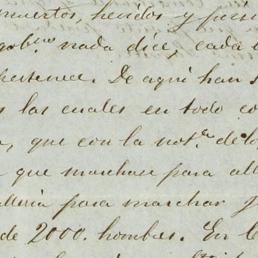 muertos, heridos y prisi
gob.no nada dice, cada u
pertenece. De aqui han s
s las cuales en todo co
, que con la not.e de lo
que marchase para all
alleria para marchar
de 2000. hombres. En l